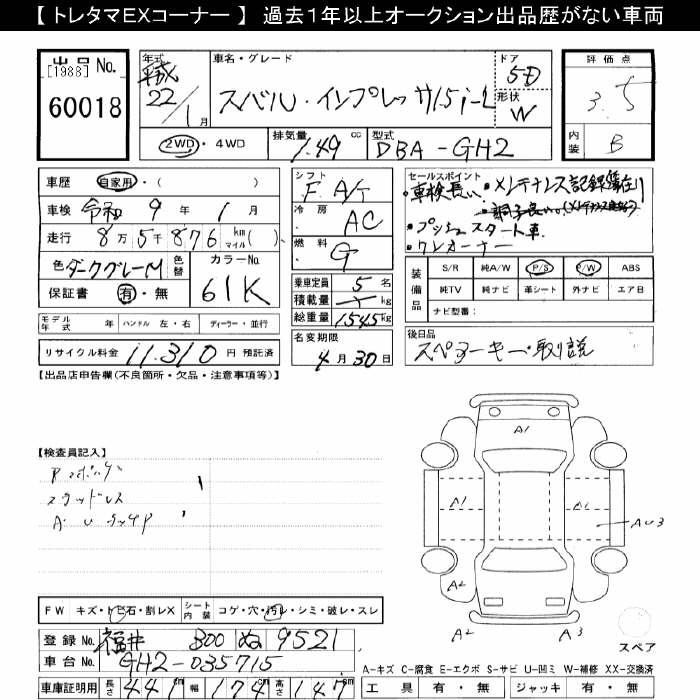 【 トレタマEXコーナー 】 過去1年以上オークション出品歴がない車両
出品 No.
[1988]
60018
年式
平成 22/1月
車名・グレード
スバル・インプレッサ1.5i-L
ドア
5D
形状
W
評価点
3.5
内装
B
2WD・4WD
排気量 1.49 cc
型式 DBA-GH2
車歴 自家用・( )
車検 令和 9年 1月
走行 8万5千876 km マイル( )
色 ダークグレーM
色替
カラーNo.
61K
保証書 有・無
シフト
F A/T
冷房
AC
燃料
G
乗車定員 5名
積載量 kg
総重量 1545kg
名変期限
4月30日
セールスポイント
・車検長い ・メンテナンス記録簿在り
・プッシュスタート車
・ワンオーナー
装備品
S/R 純A/W P/S P/W ABS
純TV 純ナビ 革シート 外ナビ エア日
ナビ型番:
モデル年式 年 ハンドル 左・右 ディーラー・並行
リサイクル料金 11,310 円 預託済
後日品
スペアーキー・取説
【出品店申告欄(不良箇所・欠品・注意事項等)】
【検査員記入】
スタッドレス
FW キズ・トビ石・割レX シート内装 コゲ・穴・汚レ・シミ・破レ・スレ
登録No. 福井 300 ぬ 9521
車台No. GH2-035715
車庫証明用 長さ 441cm 幅 174cm 高さ 147cm
A1
A1
A1
AU3
A2
A2
A3
スペア
A-キズ C-腐食 E-エクボ S-サビ U-凹ミ W-補修 XX-交換済
工具 有・無 ジャッキ 有・無